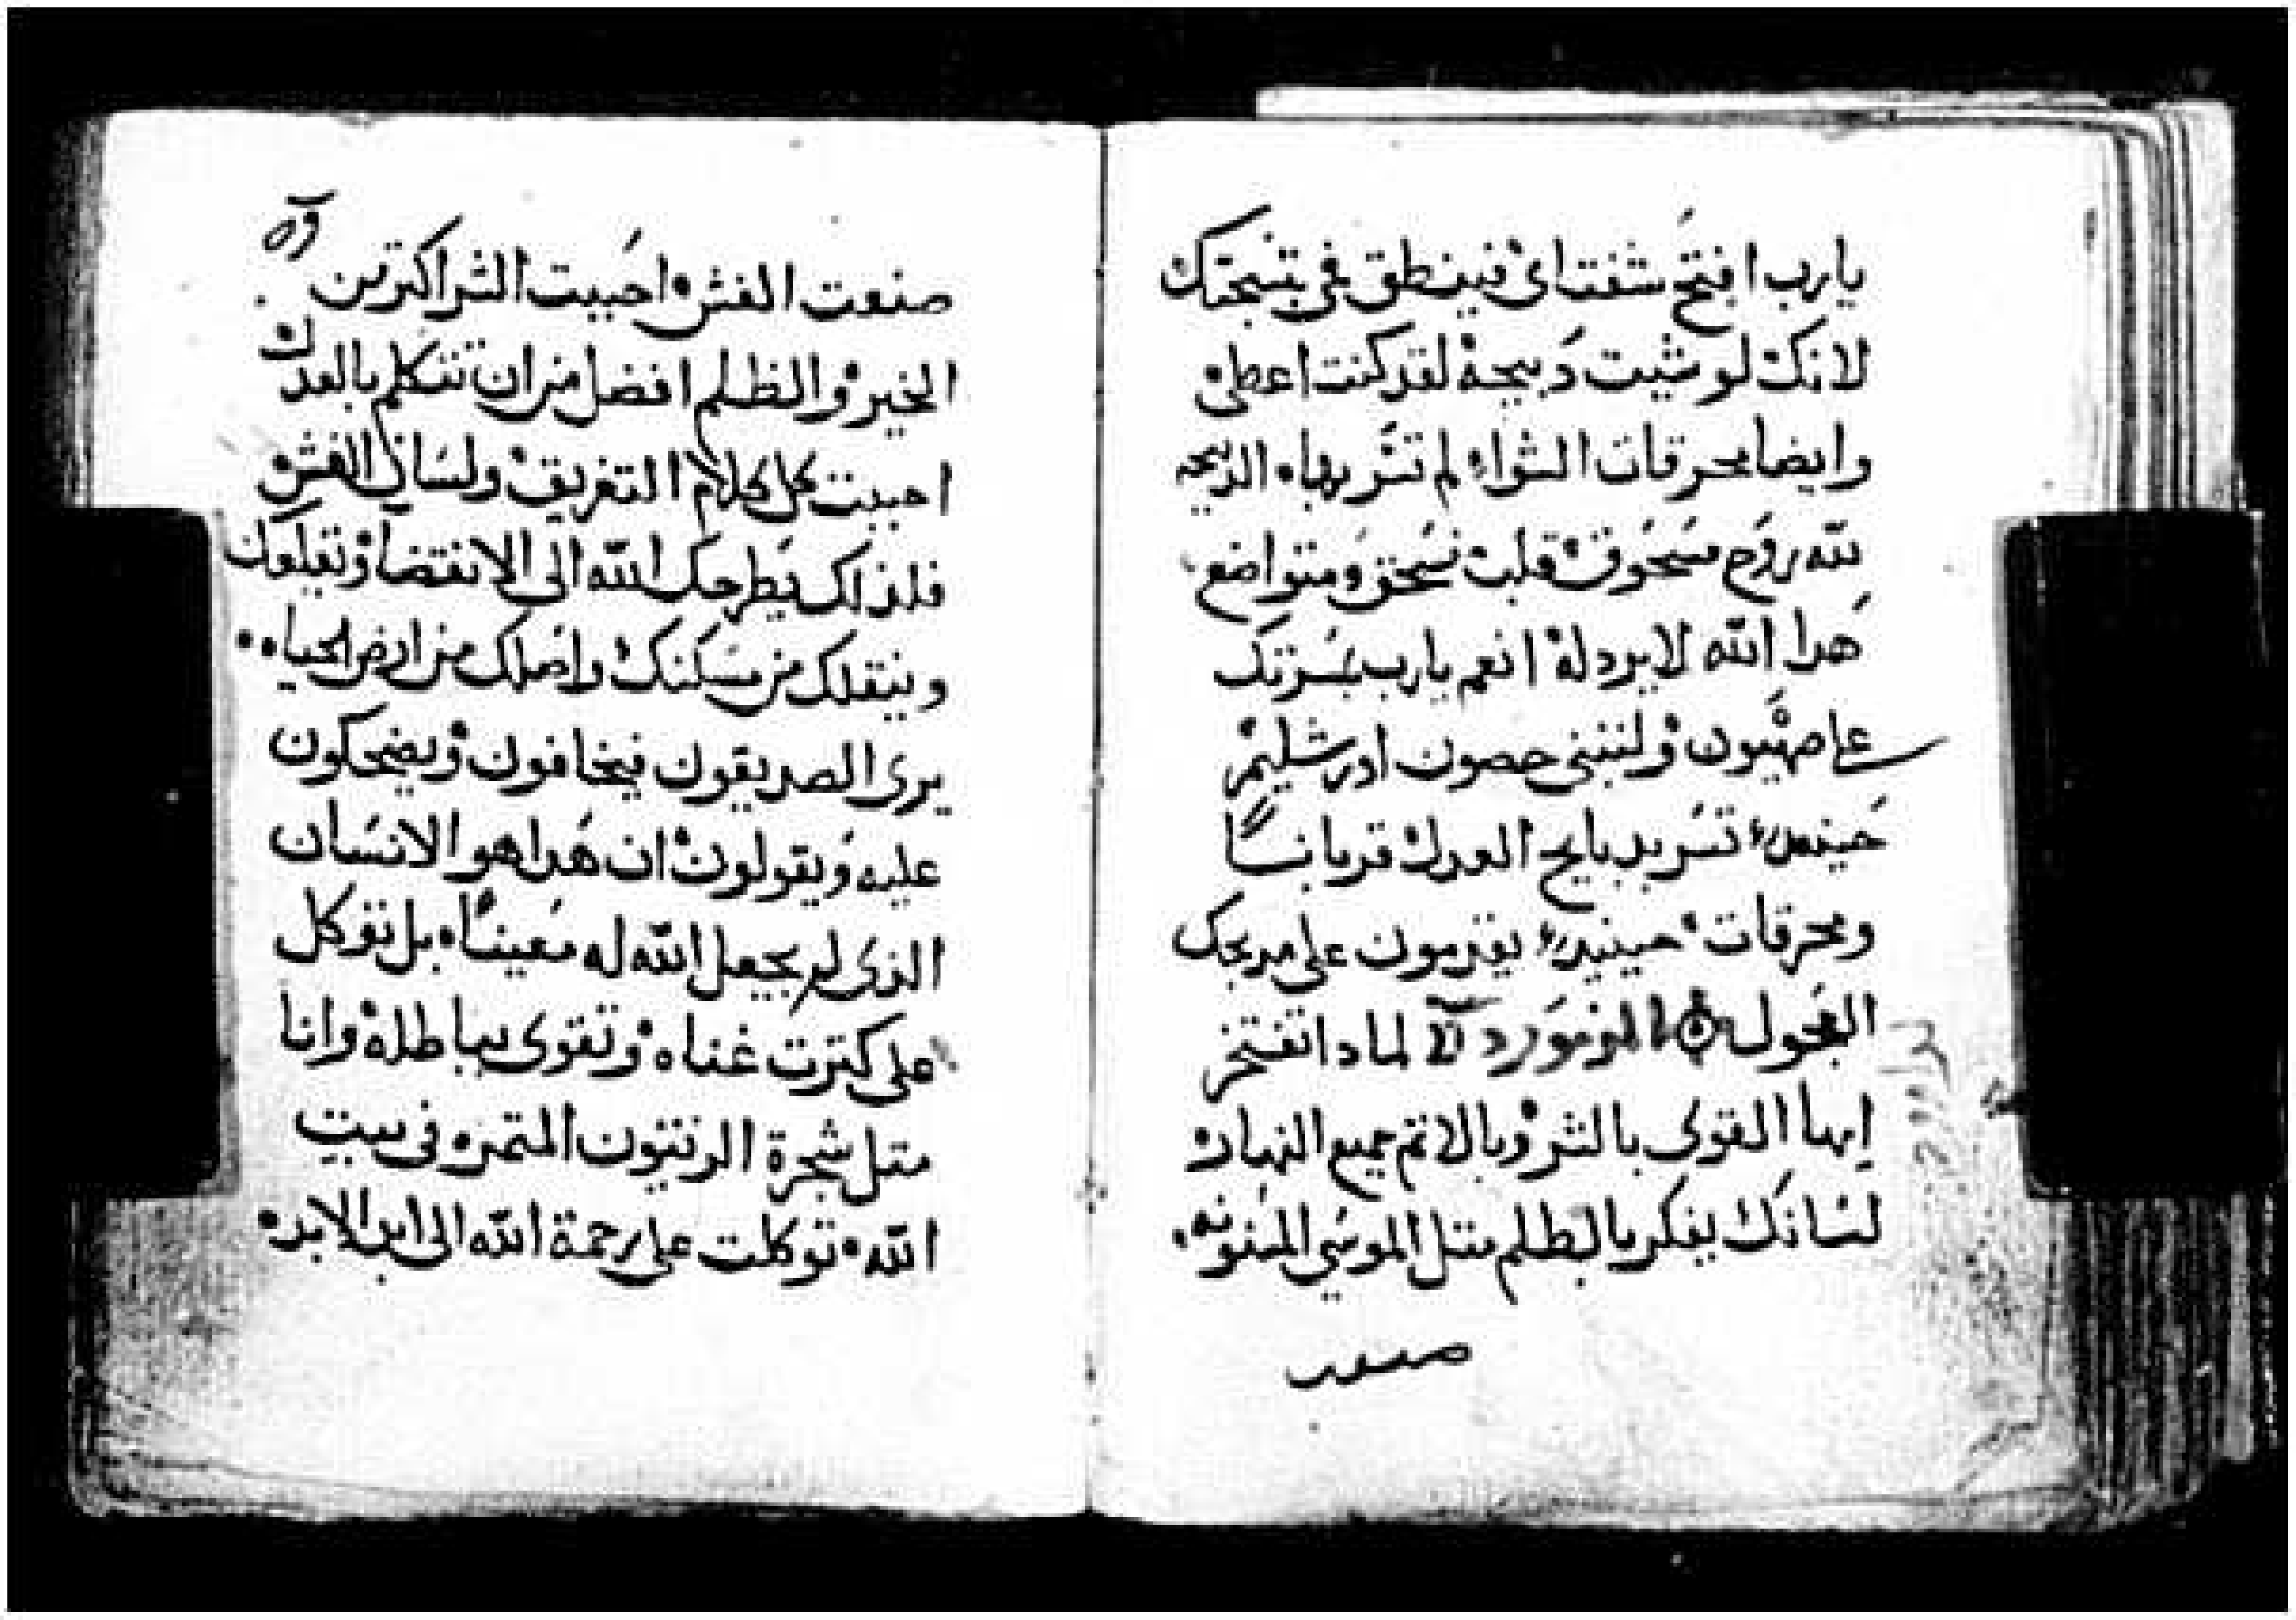 يارب افتح شفتاى فينطق فمى بتسبحتك
لانك لو شيت دبيحة لقد كنت اعطى
وايضا محرقات الشواء لم تسر بها الدبيحه
لله روح مسحوق قلب نسحق ومتواضع
هدا الله لا يردله انعم يارب بمسرتك
على صهيون ولتبنى حصون اورشليم
حينيد تسر بدبايح العدل قربانا
ومحرقات حينيد يقدمون على مدبحك
العجول المزمور لمادا تفتخر
ايها القوى بالشر وبالاتم جميع النهار
لسانك يفكر بالظلم متل الموسي المسنونه
صنعت
صنعت الغش احببت الشر اكتر من
الخير والظلم افضل من ان تتكلم بالعدل
احببت كل كلام التغريق ولسان الغش
فلذلك يطرحك الله الى الانقضا ويقلعك
وينقلك من مسكنك واصلك من ارض الحياه
يرى الصديقون فيخافون ويضحكون
عليه ويقولون ان هدا هو الانسان
الذى لم يجعل الله له معينا بل توكل
على كترت غناه وتقوى بباطله وانا
متل شجرة الزيتون المتمره فى بيت
الله توكلت على رحمة الله الى ابد الابد